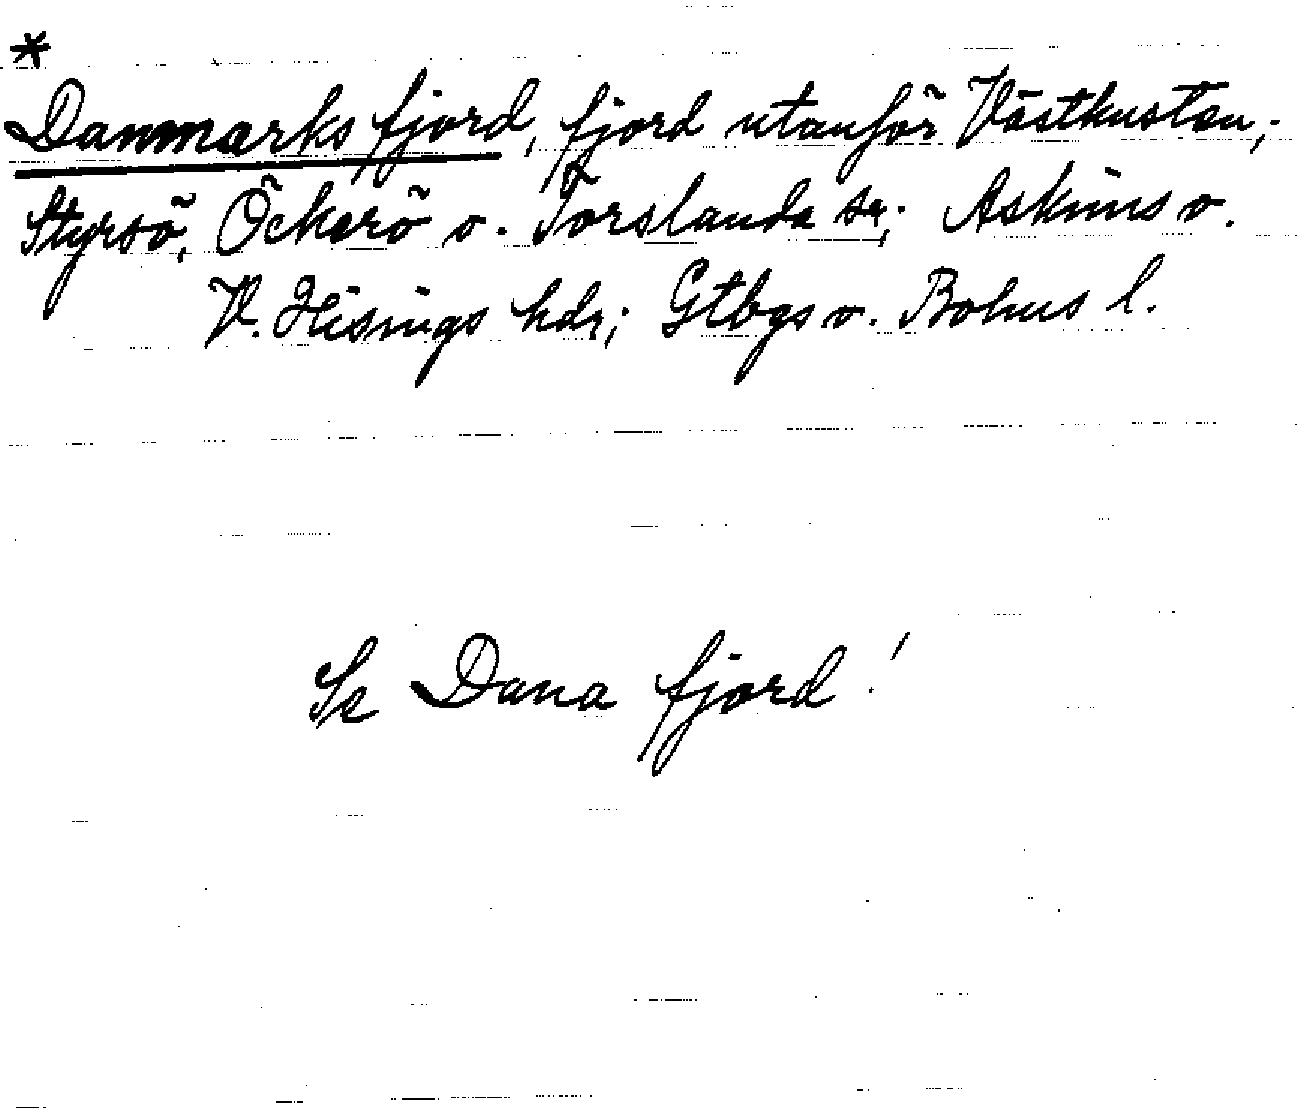 *
Danmarks fjord, fjord utanför Västkusten,
Styrsö, Öckerö o. Torslanda sr; Askims o.
V. Hisings hdr; Gtbgs o. Bohus l.
Se Dana fjord!